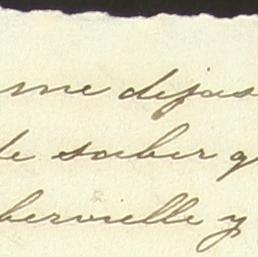 me dejas
de saber q
bervielle y